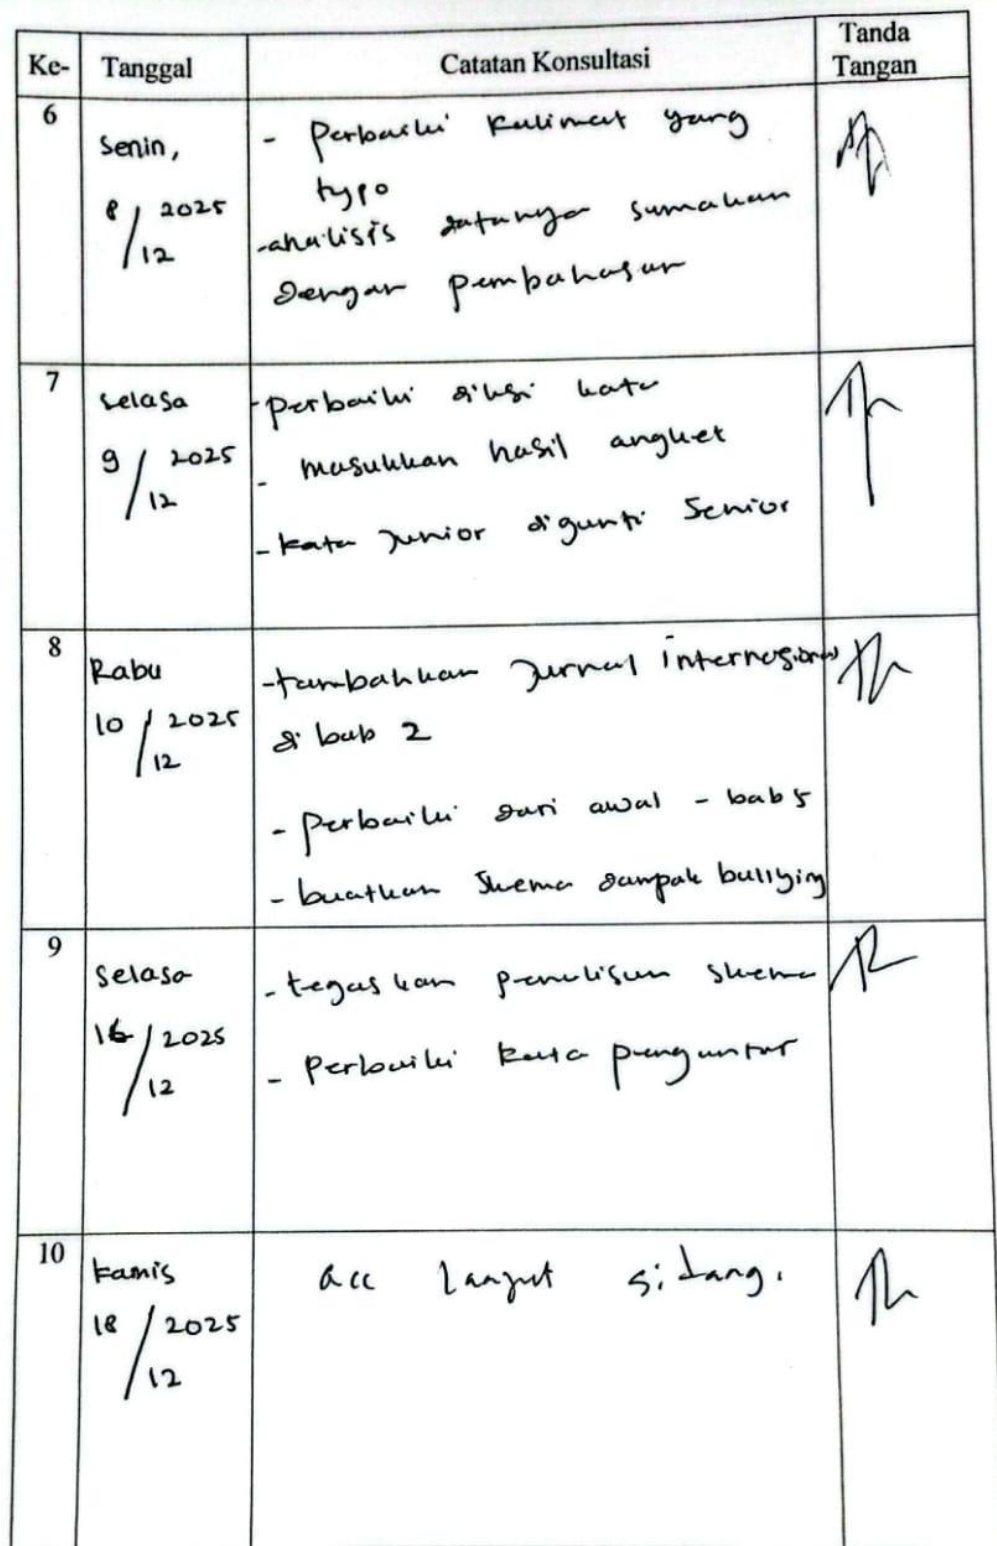 Ke- Tanggal Catatan Konsultasi Tanda Tangan
6
Senin,
8/12 2025
- Perbaiki kalimat yang
typo
- analisis datanya samakan
dengan pembahasan
7
Selasa
9/12 2025
- perbaiki diksi kata
- masukkan hasil angket
- kata junior diganti Senior
8
Rabu
10/12 2025
- tambahkan jurnal internasional
di bab 2
- Perbaiki dari awal - bab 5
- buatkan Skema dampak bullying
9
Selasa
16/12 2025
- tegaskan penulisan skema
- Perbaiki kata pengantar
10
kamis
18/12 2025
acc lanjut sidang.